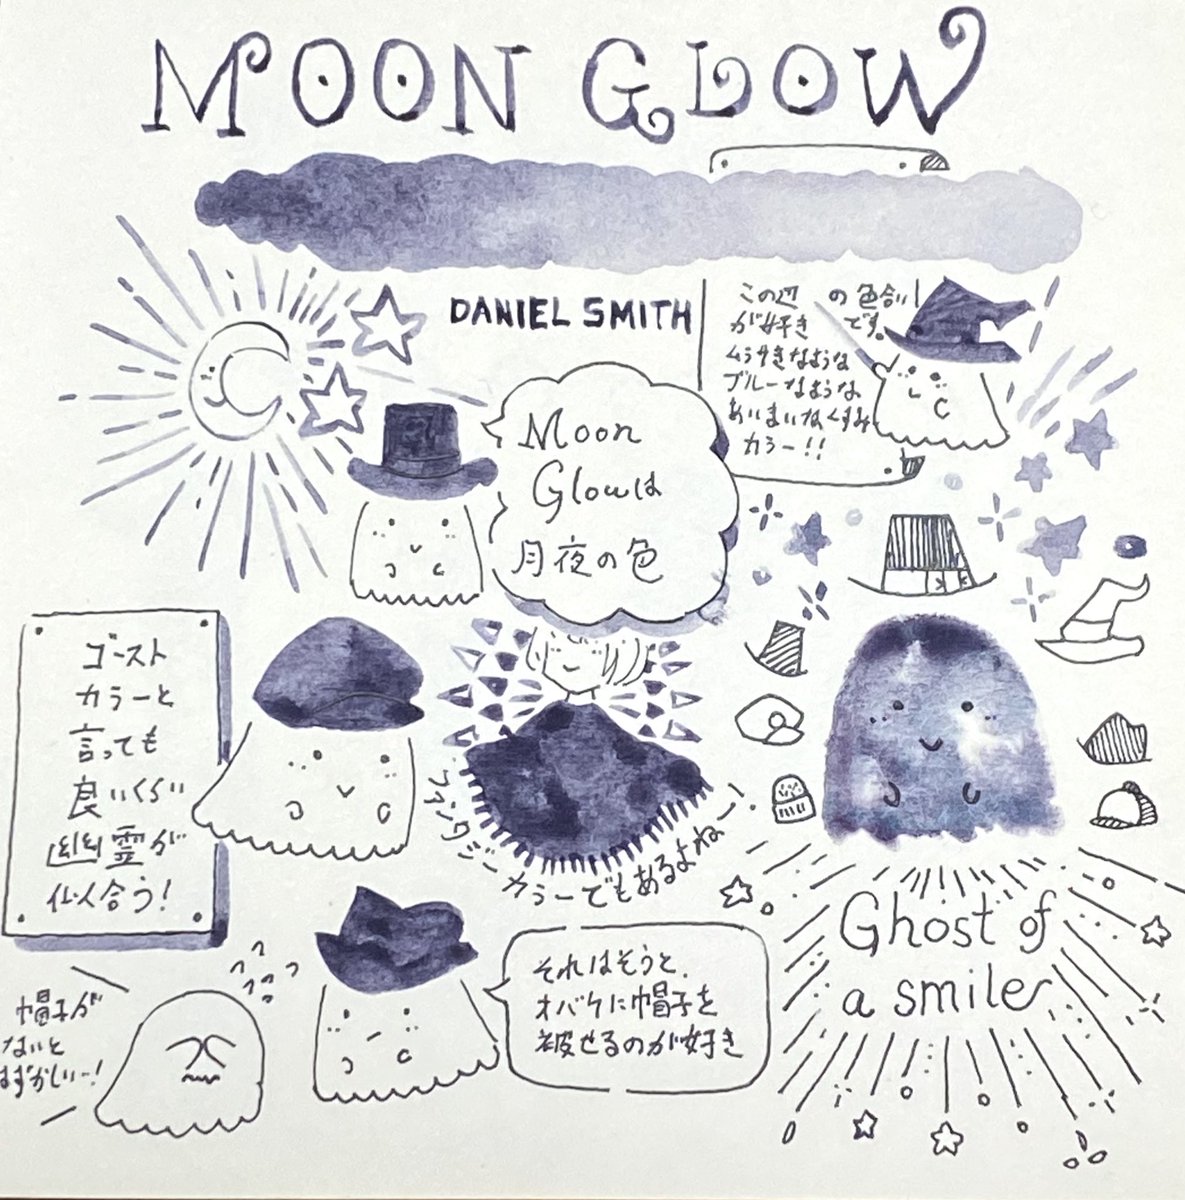 MOON GLOW
DANIEL SMITH
この辺の色合い
が好きです。
ムラサキなような
ブルーなような
あいまいなくすみ
カラー!!
Moon
Glowは
月夜の色
ゴースト
カラーと
言っても
良いくらい
幽霊が
似合う!
ファンタジーカラーでもあるよねー!
Ghost of
a smile
それはそうと、
オバケに帽子を
被せるのが好き
帽子が
ないと
はずかしいー!